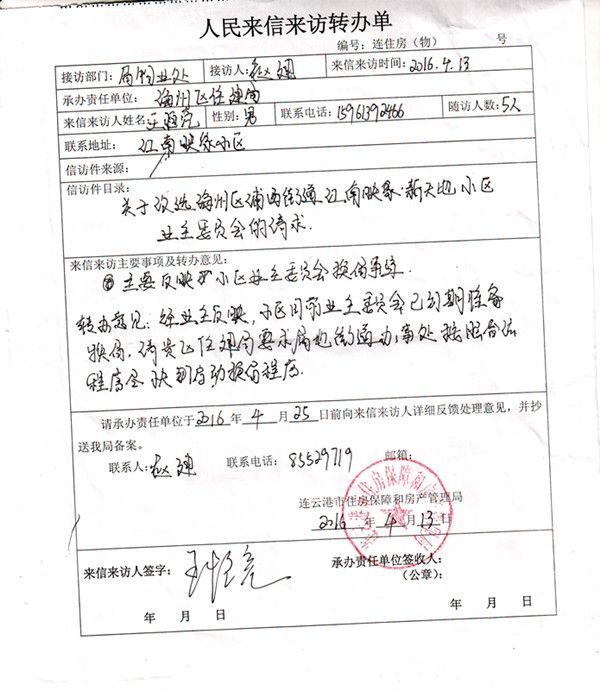 人民来信来访转办单
编号：连住房（物） 号
接访部门：局物业处 接访人：赵珊 来信来访时间：2016.4.13
承办责任单位：海州区住建局
来信来访人姓名：王 亮 性别：男 联系电话：15961392466 随访人数：5人
联系地址：江南映象小区
信访件来源：
信访件目录：
关于改选海州区浦西街道江南映象·新天地小区
业主委员会的请求.
来信来访主要事项及转办意见：
主要反映 小区业主委员会换届事项.
转办意见：经业主反映，小区目前业主委员会已到期准备
换届，请贵区住建局要求属地街道办事处按照合法
程序尽快到启动换届程序.
请承办责任单位于2016年4月25日前向来信来访人详细反馈处理意见，并抄
送我局备案。
联系人：赵珊 联系电话：85529719 邮箱：
连云港市住房保障和房产管理局
2016年4月13日
来信来访人签字： 承办责任单位签收人：
（公章）：
年 月 日 年 月 日